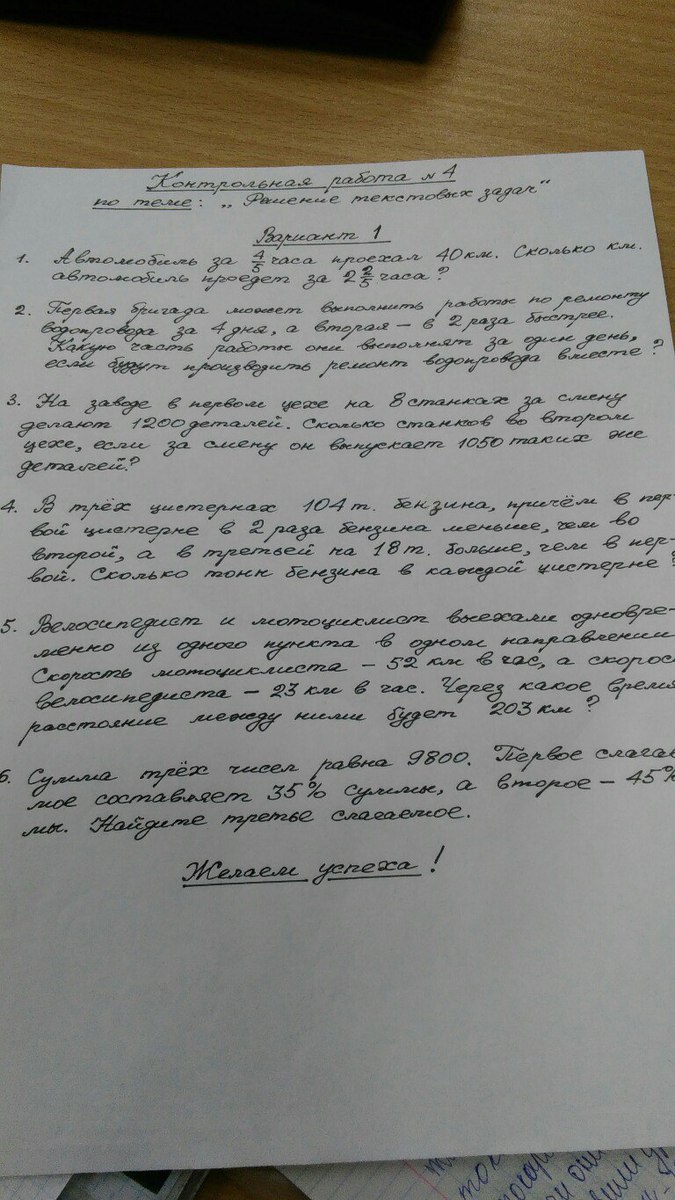 Контрольная работа № 4
по теме: „Решение текстовых задач“
Вариант 1
1. Автомобиль за 4/5 часа проехал 40 км. Сколько км.
автомобиль проедет за 2 2/5 часа?
2. Первая бригада может выполнить работы по ремонту
водопровода за 4 дня, а вторая – в 2 раза быстрее.
Какую часть работы они выполнят за один день,
если будут производить ремонт водопровода вместе?
3. На заводе в первом цехе на 8 станках за смену
делают 1200 деталей. Сколько станков во втором
цехе, если за смену он выпускает 1050 таких же
деталей?
4. В трёх цистернах 104 т. бензина, причём в пер-
вой цистерне в 2 раза бензина меньше, чем во
второй, а в третьей на 18 т. больше, чем в пер-
вой. Сколько тонн бензина в каждой цистерне?
5. Велосипедист и мотоциклист выехали одновре-
менно из одного пункта в одном направлении
Скорость мотоциклиста – 52 км в час, а скорос
велосипедиста – 23 км в час. Через какое время
расстояние между ними будет 203 км?
6. Сумма трёх чисел равна 9800. Первое слагае
мое составляет 35% суммы, а второе – 45%
мы. Найдите третье слагаемое.
Желаем успеха!